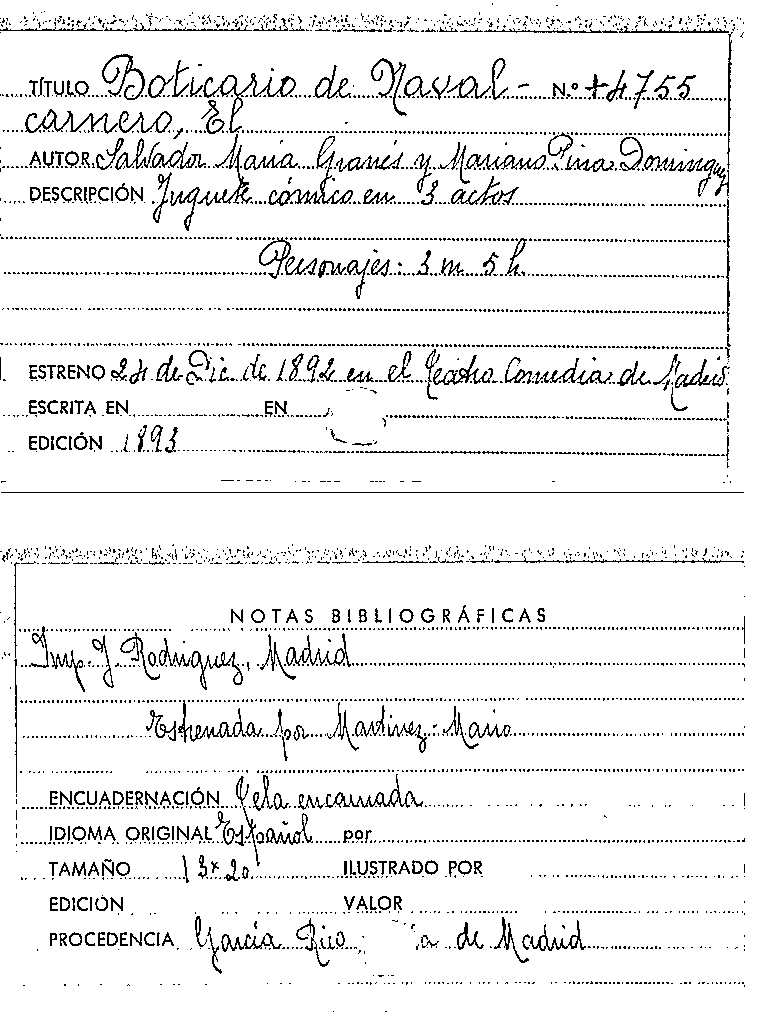 TÍTULO Boticario de Naval- N.º +4755
carnero, El
AUTOR Salvador María Granés y Mariano Pina Dominguez
DESCRIPCIÓN Juguete cómico en 3 actos
Personajes: 3 m 5 h.
ESTRENO 24 de Dic. de 1892 en el Teatro Comedia de Madrid
ESCRITA EN EN
EDICIÓN 1893
NOTAS BIBLIOGRÁFICAS
Imp. J. Rodriguez, Madrid
Estrenada por Martinez-Mario
ENCUADERNACIÓN Tela encarnada
IDIOMA ORIGINAL Español por
TAMAÑO 13x20 ILUSTRADO POR
EDICIÓN VALOR
PROCEDENCIA García Rico de Madrid